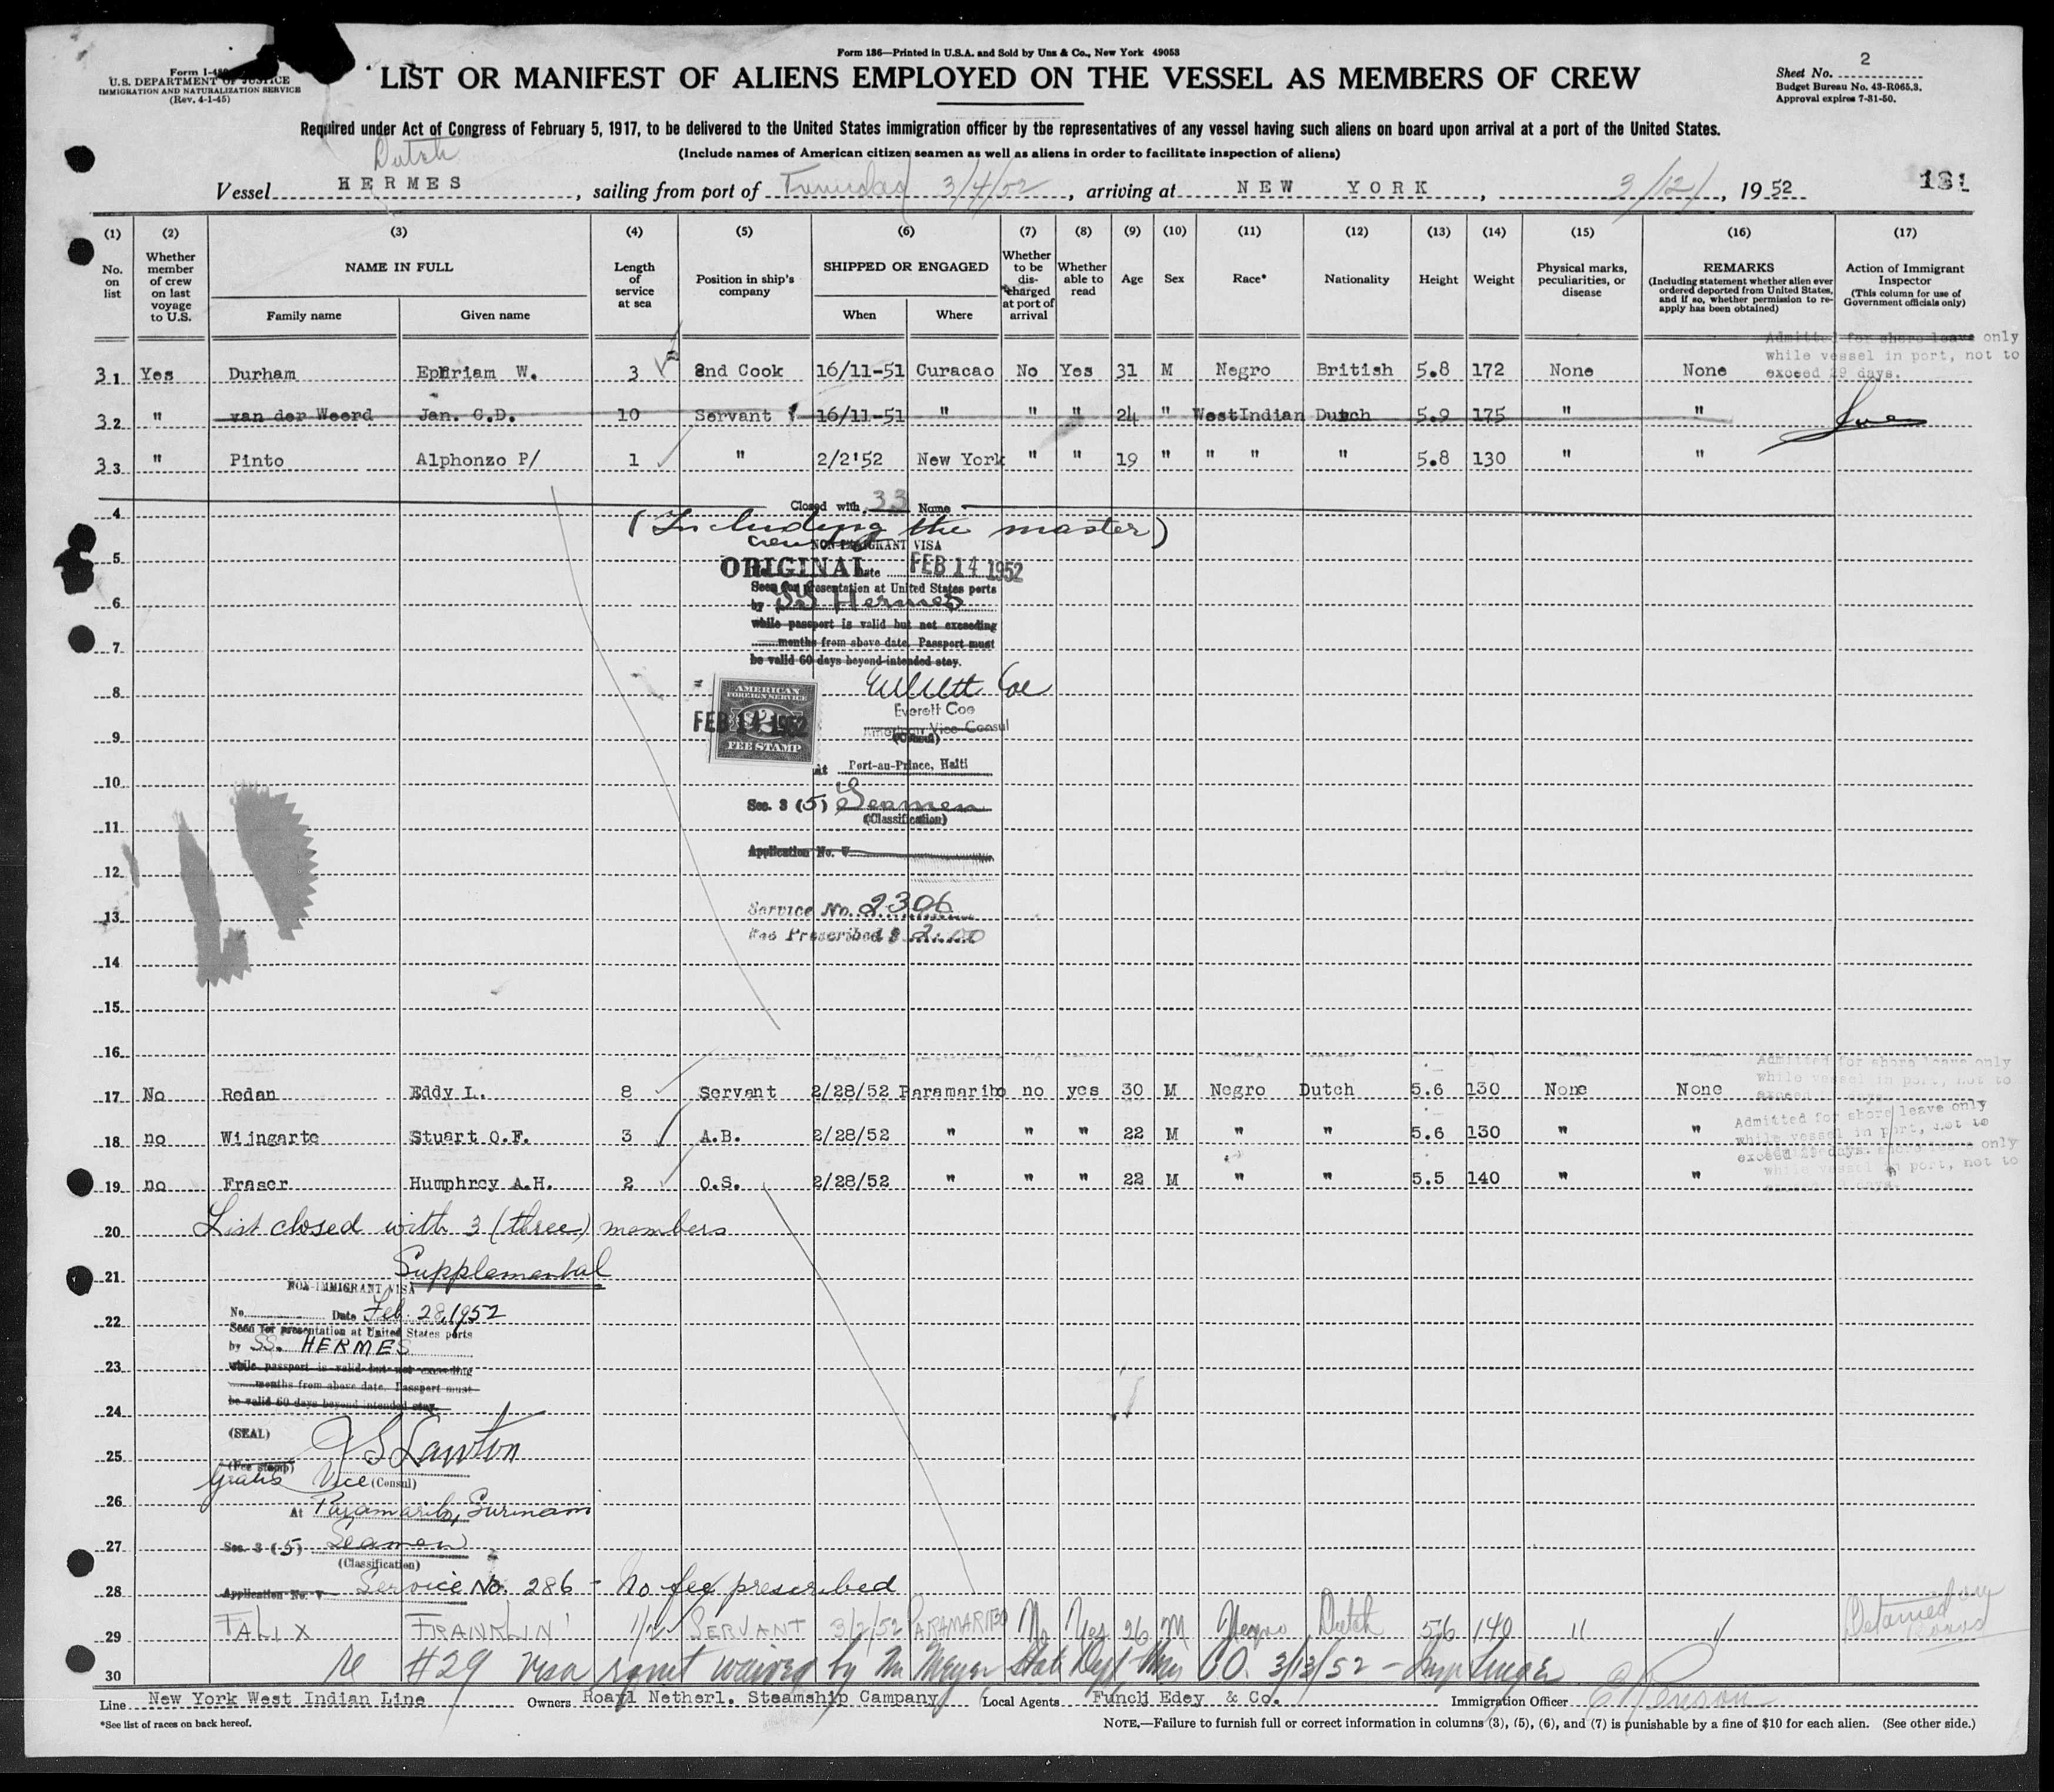 Form 136—Printed in U.S.A. and Sold by Unz & Co., New York 49053
Form I-480
U.S. DEPARTMENT OF JUSTICE
IMMIGRATION AND NATURALIZATION SERVICE
(Rev. 4-1-45)
LIST OR MANIFEST OF ALIENS EMPLOYED ON THE VESSEL AS MEMBERS OF CREW
2
Sheet No.
Budget Bureau No. 43-R065.3.
Approval expires 7-31-50.
Required under Act of Congress of February 5, 1917, to be delivered to the United States immigration officer by the representatives of any vessel having such aliens on board upon arrival at a port of the United States.
Dutch
(Include names of American citizen seamen as well as aliens in order to facilitate inspection of aliens)
Vessel HERMES, sailing from port of Trinidad 3/4/52, arriving at NEW YORK, 3/12/, 1952
131
(1) (2) (3) (4) (5) (6) (7) (8) (9) (10) (11) (12) (13) (14) (15) (16) (17)
No. on list
Whether member of crew on last voyage to U.S.
NAME IN FULL
Family name
Given name
Length of service at sea
Position in ship's company
SHIPPED OR ENGAGED
When
Where
Whether to be discharged at port of arrival
Whether able to read
Age
Sex
Race*
Nationality
Height
Weight
Physical marks, peculiarities, or disease
REMARKS
(Including statement whether alien ever ordered deported from United States, and if so, whether permission to reapply has been obtained)
Action of Immigrant Inspector
(This column for use of Government officials only)
Admitted for shore leave only
while vessel in port, not to
exceed 29 days.
31 Yes Durham Ephriam W. 3 2nd Cook 16/11-51 Curacao No Yes 31 M Negro British 5.8 172 None None
32 " van der Weerd Jan. C.D. 10 Servant 16/11-51 " " " 24 " West Indian Dutch 5.9 175 " "
33 " Pinto Alphonzo P/ 1 " 2/2'52 New York " " 19 " " " " 5.8 130 " "
Closed with 33 Name
4
(Including the master)
Crew NON-IMMIGRANT VISA
5
ORIGINAL Date FEB 14 1952
Seen for presentation at United States ports
6
by SS Hermes
while passport is valid but not exceeding
7
months from above date. Passport must
be valid 60 days beyond intended stay.
8
AMERICAN FOREIGN SERVICE
$2
FEE STAMP
FEB 14 1952
Everett Coe
Everett Coe
American Vice Consul
9
(Consul)
at Port-au-Prince, Haiti
10
Sec. 3 (5) Seamen
(Classification)
11
Application No. V
12
Service No. 2306
13
Fee Prescribed $ 2.00
14
15
16
Admitted for shore leave only
while vessel in port, not to
exceed days.
17 No Redan Eddy L. 8 Servant 2/28/52 Paramaribo no yes 30 M Negro Dutch 5.6 130 None None
Admitted for shore leave only
while vessel in port, not to
exceed 29 days.
18 no Wijngarte Stuart O.F. 3 A.B. 2/28/52 " " " 22 M " " 5.6 130 " "
shore leave only
while vessel in port, not to
19 no Fraser Humphrey A.H. 2 O.S. 2/28/52 " " " 22 M " " 5.5 140 " "
20 List closed with 3 (three) members
21 Supplemental
NON-IMMIGRANT VISA
22 No. Date Feb. 28, 1952
Seen for presentation at United States ports
by SS. HERMES
23 while passport is valid but not exceeding
months from above date. Passport must
24 be valid 60 days beyond intended stay.
(SEAL)
25 J S Lawton
(Fee stamp)
Gratis Vice (Consul)
26 At Paramaribo, Surinam
27 Sec. 3 (5) Seamen
(Classification)
28 Application No. V Service No. 286 - No fee prescribed
29 TALIX FRANKLIN 1/2 SERVANT 3/2/52 PARAMARIBO No Yes 26 M Negro Dutch 5'6 140 " "
Detained on
board
30 re #29 Visa waived by Mr Meyer State Dept 3/13/52
Line New York West Indian Line Owners Roayl Netherl. Steamship Campany Local Agents Funch Edey & Co. Immigration Officer
*See list of races on back hereof.
NOTE.—Failure to furnish full or correct information in columns (3), (5), (6), and (7) is punishable by a fine of $10 for each alien. (See other side.)